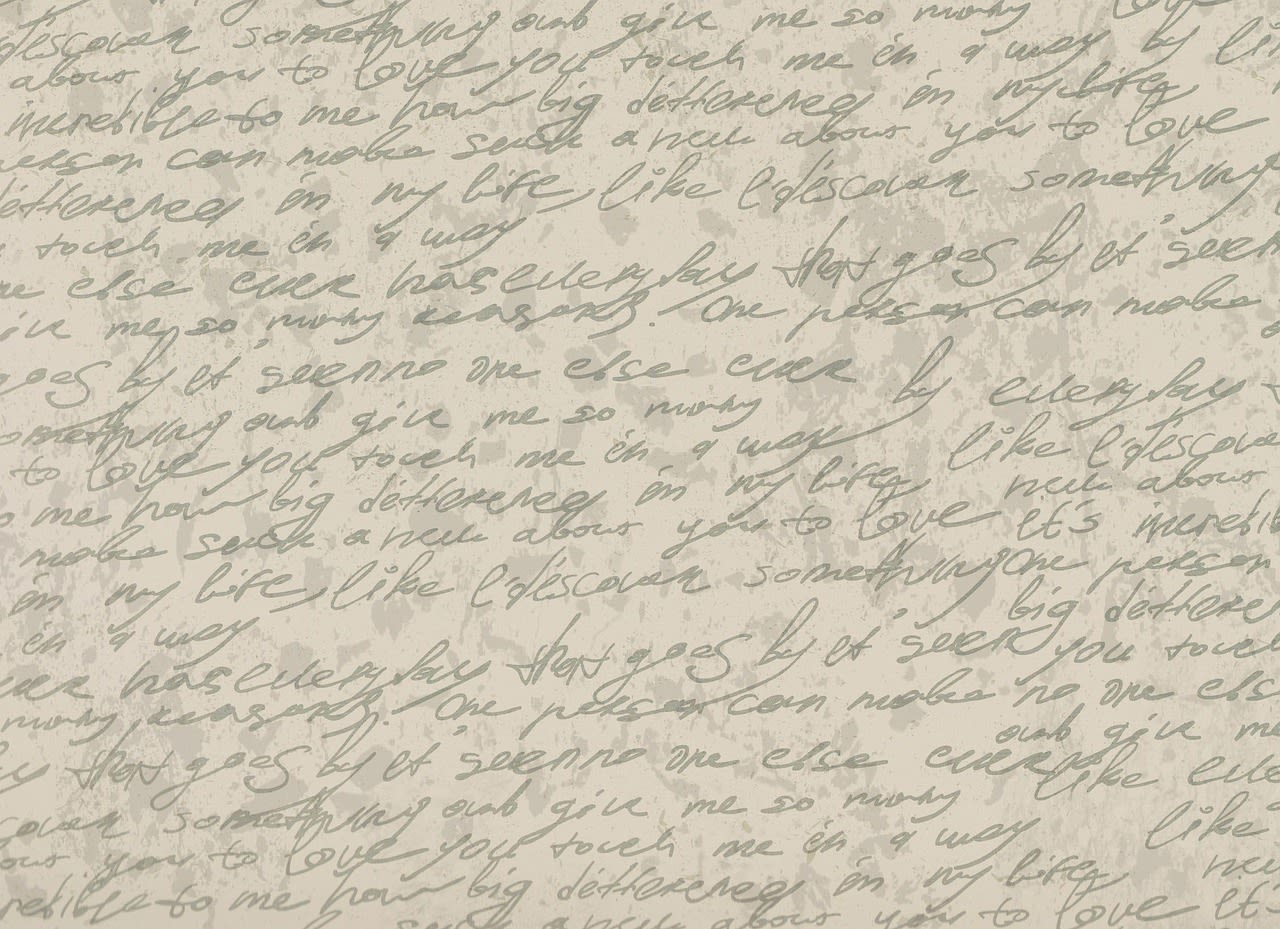 something and give me so many love
discover something and give me so many
about you to love you touch me in a way by
incredible to me how big difference in my life
person can make such a new about you to love
difference in my life, like I discover something
touch me in a way
else ever has every day that goes by it seem
give me so many reasons. One person can make
goes by it seem no one else ever by every day
something and give me so many
to love you touch me in a way like I discover
to me how big difference in my life new about
make such a new about you to love It's incredible
in my life, like I discover something One person
in a way big difference
ever has every day that goes by it seem you touch
many reasons. One person can make no one else
that goes by it seem no one else ever and give me
discover something and give me so many like
about you to love you touch me in a way like
incredible to me how big difference in my life new
such a new about you to love It's